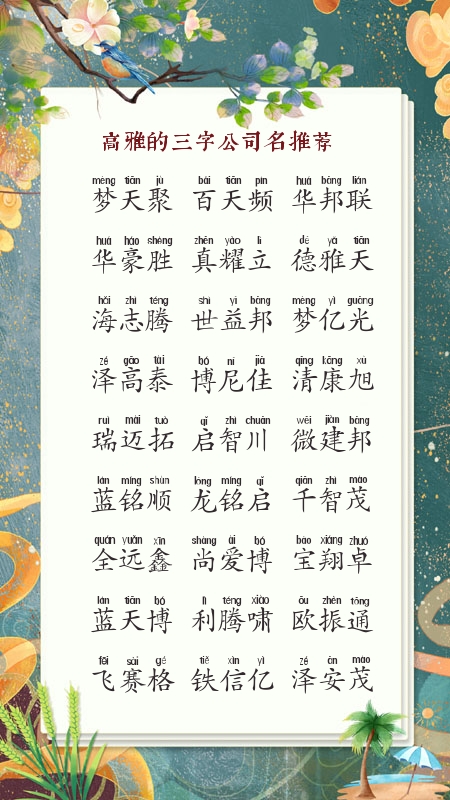 高雅的三字公司名推荐
mèng tiān jù bǎi tiān pín huá bāng lián
梦天聚 百天频 华邦联
huá háo shèng zhēn yào lì dé yǎ tiān
华豪胜 真耀立 德雅天
hǎi zhì téng shì yì bāng mèng yì guāng
海志腾 世益邦 梦亿光
zé gāo tài bó ní jiā qīng kāng xù
泽高泰 博尼佳 清康旭
ruì mài tuò qǐ zhì chuān wēi jiàn bāng
瑞迈拓 启智川 微建邦
lán míng shùn lóng míng qǐ qiān zhì mào
蓝铭顺 龙铭启 千智茂
quán yuǎn xīn shàng ài bó bǎo xiáng zhuó
全远鑫 尚爱博 宝翔卓
lán tiān bó lì téng xiào ōu zhèn tōng
蓝天博 利腾啸 欧振通
fēi sài gé tiě xìn yì zé ān mào
飞赛格 铁信亿 泽安茂